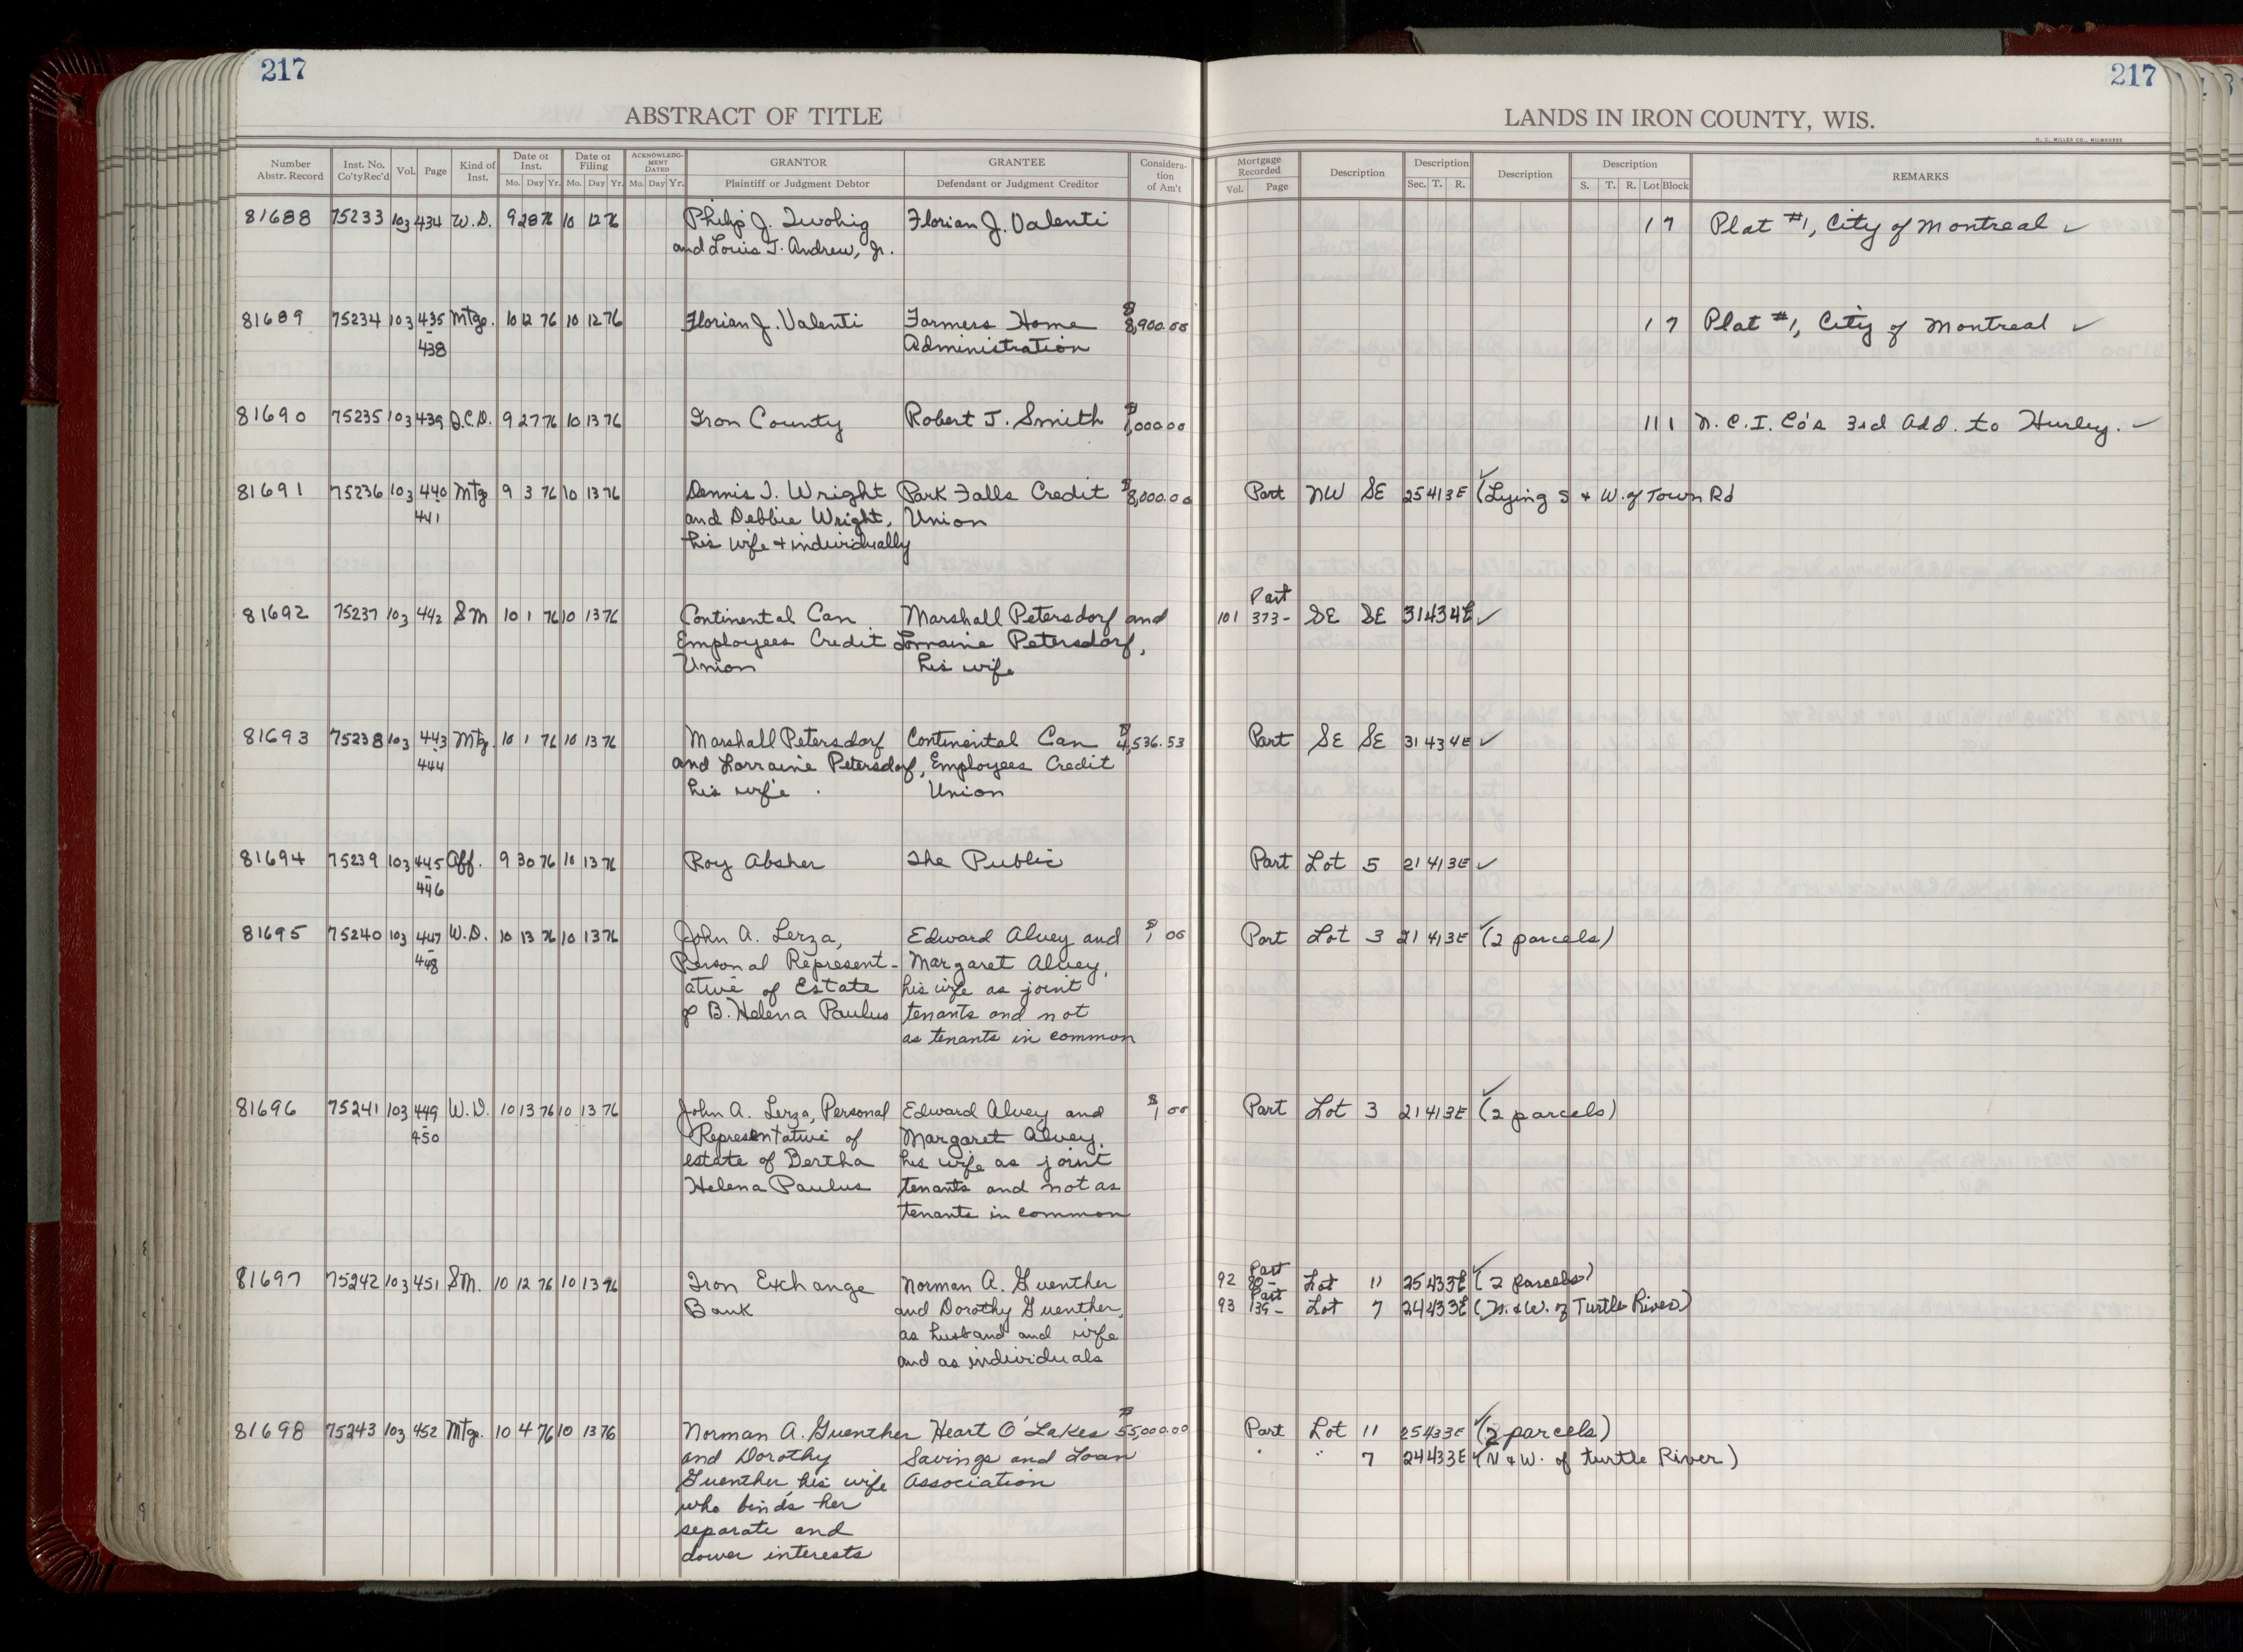 217
217
ABSTRACT OF TITLE
LANDS IN IRON COUNTY, WIS.
H. C. MILLER CO., MILWAUKEE
Number Abstr. Record | Inst. No. Co'ty Rec'd | Vol. | Page | Kind of Inst. | Date of Inst. Mo. Day Yr. | Date of Filing Mo. Day Yr. | ACKNOWLEDGMENT DATED Mo. Day Yr. | GRANTOR Plaintiff or Judgment Debtor | GRANTEE Defendant or Judgment Creditor | Consideration of Am't | Mortgage Recorded Vol. Page | Description | Description Sec. T. R. | Description | Description S. T. R. Lot Block | REMARKS
81688 75233 103 434 W.D. 9 28 76 10 12 76 Philip J. Twohig Florian J. Valenti 1 7 Plat #1, City of Montreal ✓
and Louis J. Andrew, Jr.
81689 75234 103 435 Mtge. 10 12 76 10 12 76 Florian J. Valenti Farmers Home $8,900.00 1 7 Plat #1, City of Montreal ✓
- 438 Administration
81690 75235 103 439 Q.C.D. 9 27 76 10 13 76 Iron County Robert J. Smith $1,000.00 11 1 N.C.I. Co's 3rd Add. to Hurley. ✓
81691 75236 103 440 Mtg 9 3 76 10 13 76 Dennis J. Wright Park Falls Credit $8,000.00 Part NW SE 25 41 3E ✓ (Lying S & W. of Town Rd
441 and Debbie Wright, Union
his wife & individually
Part
81692 75237 103 442 SM 10 1 76 10 13 76 Continental Can Marshall Petersdorf and 101 373- SE SE 31 43 4E ✓
Employees Credit Lorraine Petersdorf,
Union his wife
81693 75238 103 443 Mtg. 10 1 76 10 13 76 Marshall Petersdorf Continental Can $4,536.53 Part SE SE 31 43 4E ✓
444 and Lorraine Petersdorf, Employees Credit
his wife. Union
81694 75239 103 445 Aff. 9 30 76 10 13 76 Roy Absher The Public Part Lot 5 21 41 3E ✓
- 446
81695 75240 103 447 W.D. 10 13 76 10 13 76 John A. Lerza, Edward Alvey and $1 00 Part Lot 3 21 41 3E ✓ (2 parcels)
- 448 Personal Represent- Margaret Alvey,
ative of Estate his wife as joint
of B. Helena Paulus tenants and not
as tenants in common
81696 75241 103 449 W.D. 10 13 76 10 13 76 John A. Lerza, Personal Edward Alvey and $1 00 Part Lot 3 21 41 3E ✓ (2 parcels)
- 450 Representative of Margaret Alvey,
estate of Bertha his wife as joint
Helena Paulus tenants and not as
tenants in common
Part
81697 75242 103 451 SM. 10 12 76 10 13 76 Iron Exchange Norman A. Guenther 92 Lot 11 25 43 3E ✓ (2 parcels)
Part
Bank and Dorothy Guenther, 93 139- Lot 7 24 43 3E (N. & W. of Turtle River)
as husband and wife
and as individuals
81698 75243 103 452 Mtge. 10 4 76 10 13 76 Norman A. Guenther Heart O'Lakes $55,000.00 Part Lot 11 25 43 3E ✓ (2 parcels)
and Dorothy Savings and Loan " " 7 24 43 3E ✓ (N & W. of turtle River)
Guenther, his wife Association
who binds her
separate and
dower interests